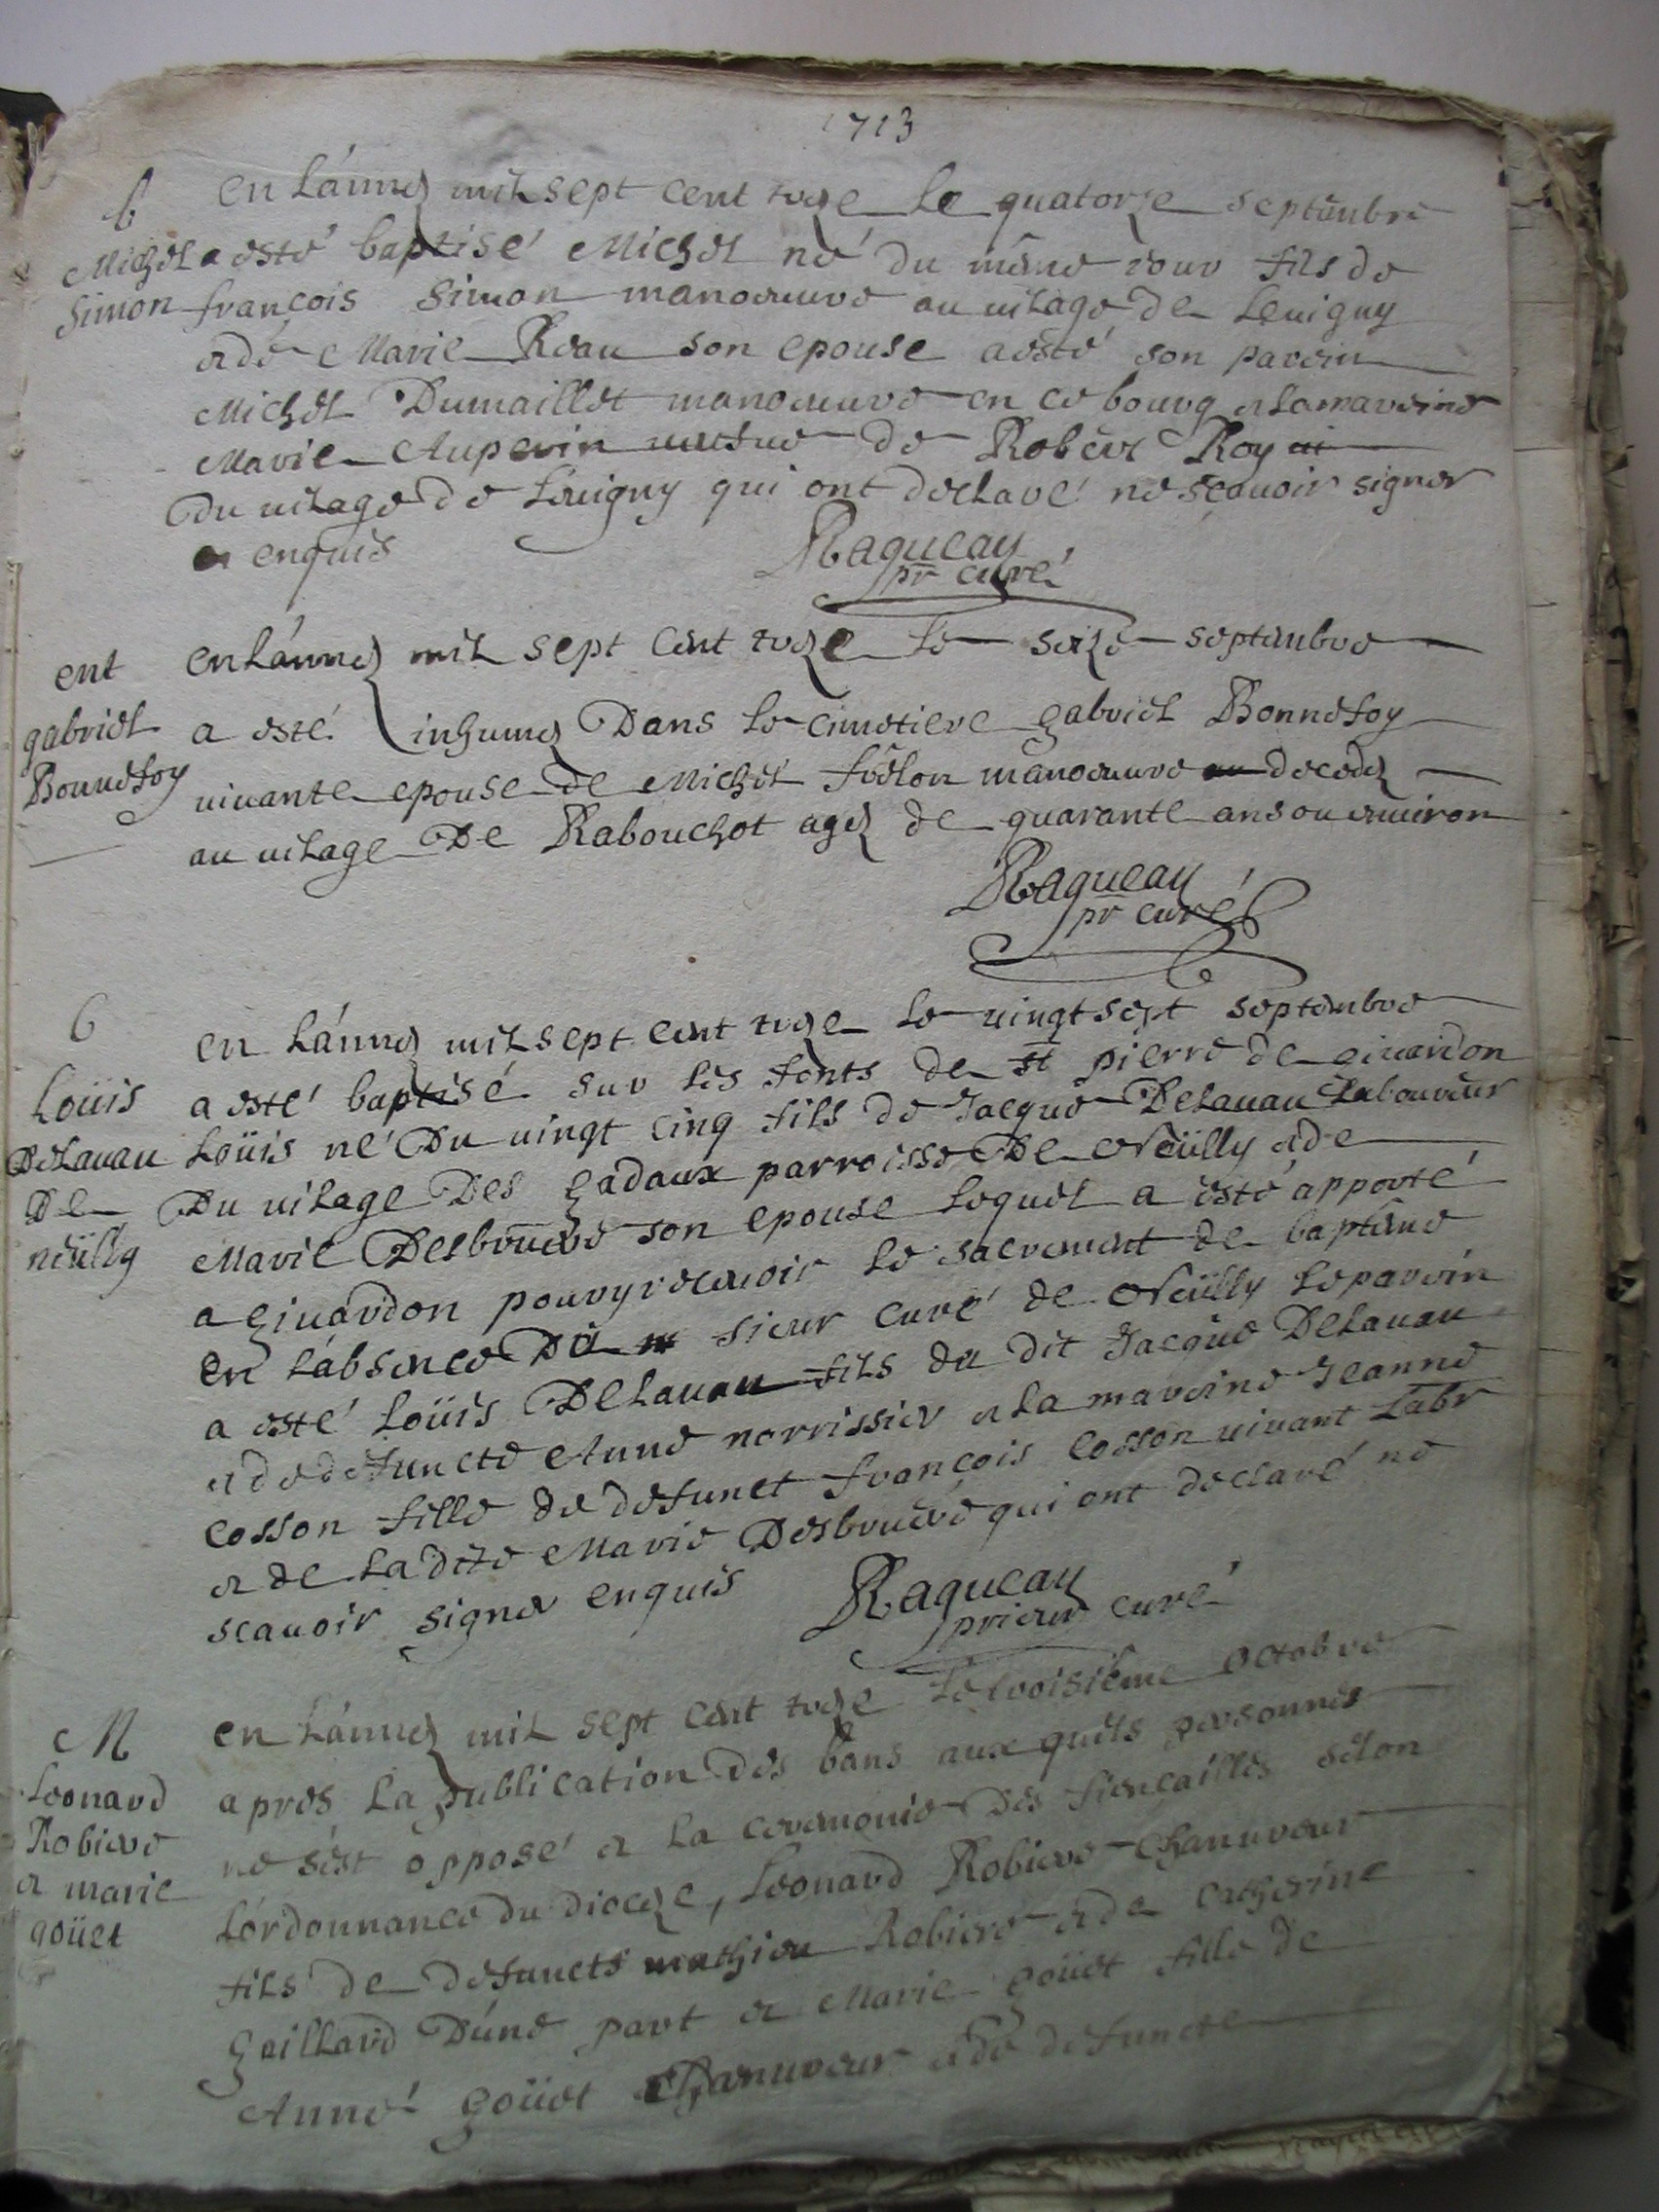 1713
b
Michel
Simon
en l'année mil sept cent treze le quatorze septembre
a esté baptisé Michel né du même iour fils de
françois Simon manoeuure au uilage de Leuigny
et de Marie Reau son epouse a esté son parein
Michel Dumaillet manoeuure en ce bourg et la mareine
Marie Auperin ueufue de Robert Roy
du uilage de Leuigny qui ont declaré ne scauoir signer
enquis
Raqueau
pr curé
ent
gabriel
Bonnefoy
en l'année mil sept cent treze le seize septembre
a esté inhumée Dans le cimetiere gabriel Bonnefoy
uiuante epouse de Michel manoeuure decedée
au uilage De Rabouchot agée de quarante ans ou enuiron
Raqueau
pr curé
b
Loüis
Delauau
De
neüilly
en l'année mil sept cent treze le uingt sept septembre
a esté baptisé sur les fonts de st pierre de giuardon
Loüis né Du uingt cinq fils de Jacque Delauau Laboureur
Du uilage Des gadaux parroisse De Neüilly et de
Marie Desbruere son epouse lequel a esté apporté
a giuardon pour y receuoir le sacrement de baptême
en l'absence Du sieur curé de Neüilly le parein
a esté Loüis Delauau fils du dit Jacque Delauau
et de defuncte Anne norrissier et la mareine Jeanne
cosson fille de defunct françois cosson uiuant Labr
et de La dite Marie Desbruere qui ont declaré ne
scauoir signer enquis
Raqueau
prieur curé
M
Leonard
Robiere
et marie
goüet
en l'année mil sept cent treze le troisiême octobre
apres la publication des bans aux quels personnes
ne s'est opposé et la ceremonie des fiencailles selon
l'ordonnance du dioceze, Leonard Robiere chanureur
fils de defuncts mathieu Robiere et de catherine
gaillard D'une part et Marie goüet fille de
Anné goüet chanureur et de defuncte